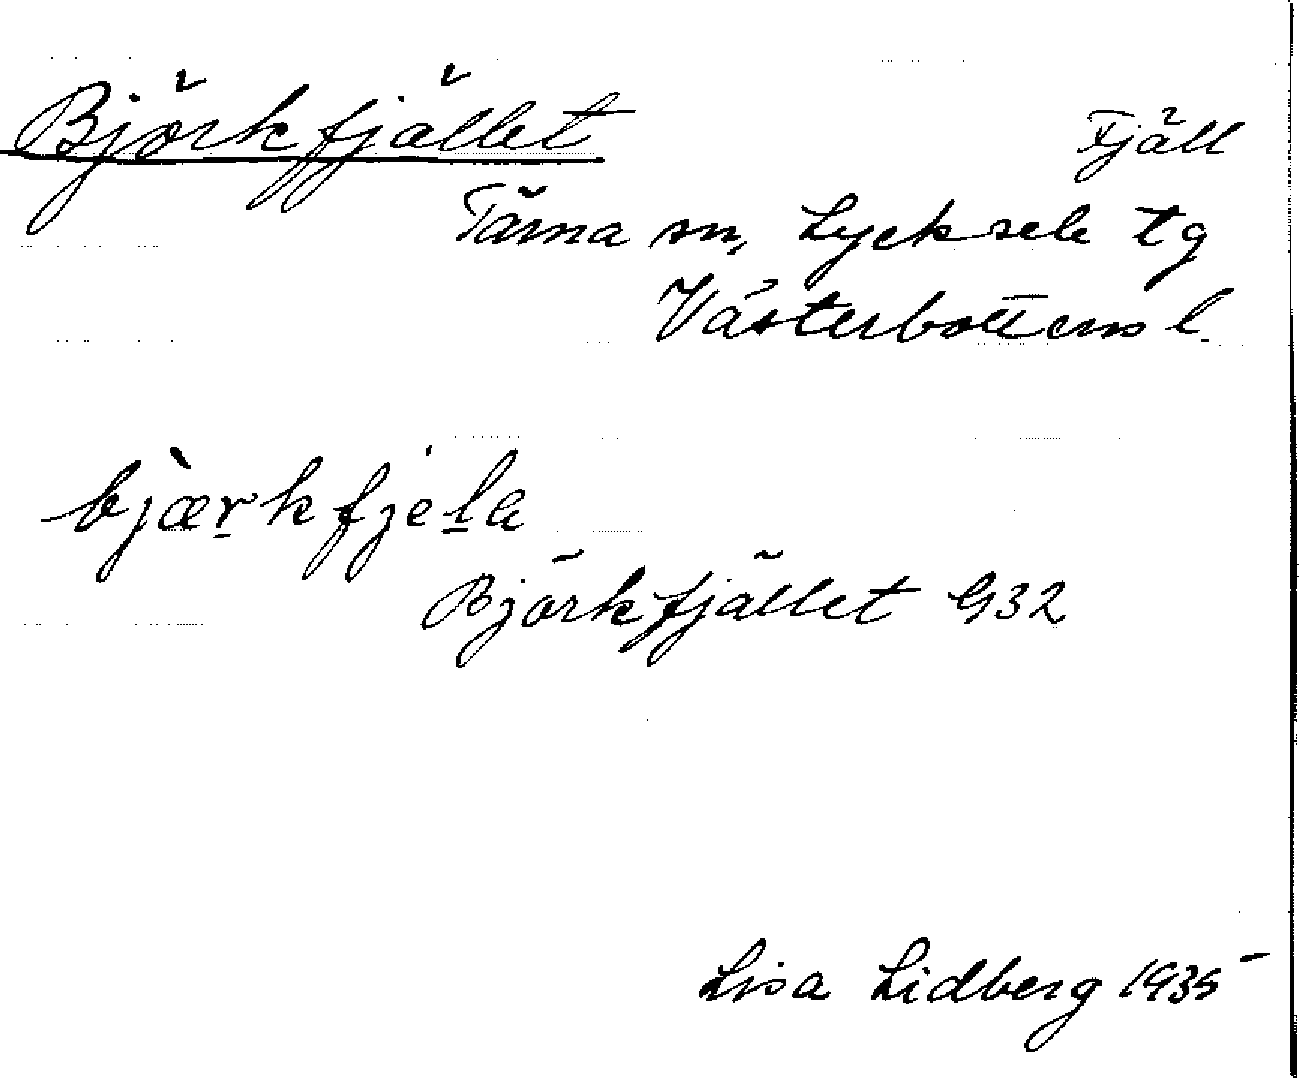 Björkfjället
Fjäll
Tärna sn, Lycksele tg
Västerbottens l.
bjæ̀rkfjęla
Björkfjället G32
Lisa Lidberg 1935